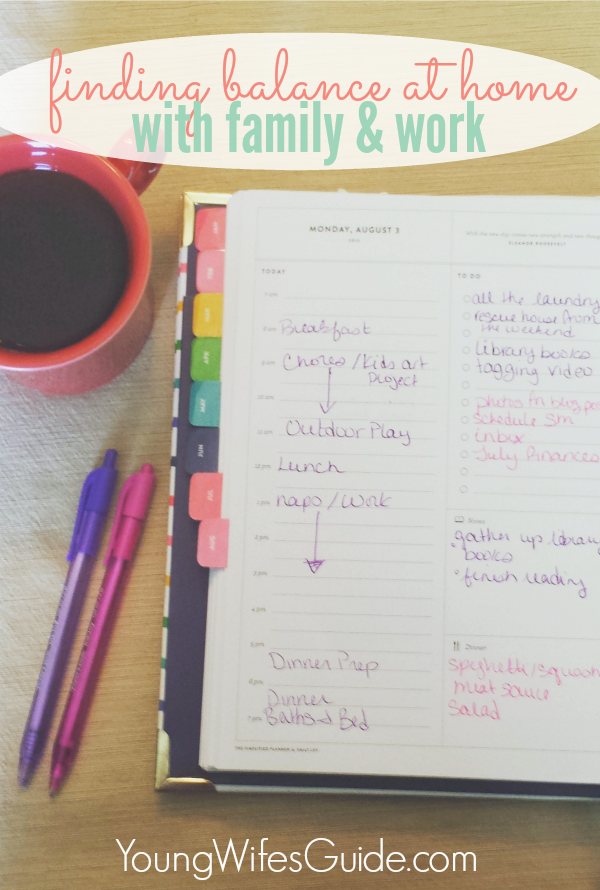 finding balance at home
with family & work
MONDAY, AUGUST 3
ELEANOR ROOSEVELT
TODAY
8 am Breakfast
9 am Chores / Kids art
Project
Outdoor Play
12 pm Lunch
1 pm naps / Work
2 pm
3 pm
4 pm
5 pm
Dinner Prep
6 pm
Dinner
7 pm Baths & Bed
TO DO
all the laundry
rescue house from
the weekend
library books
tagging video
photos fn blog pos
schedule SM
inbox
July Finances
Notes
gather up library
books
finish reading
Dinner
spaghetti/squash
meat sauce
salad
MAY
JUN
JUL
YoungWifesGuide.com